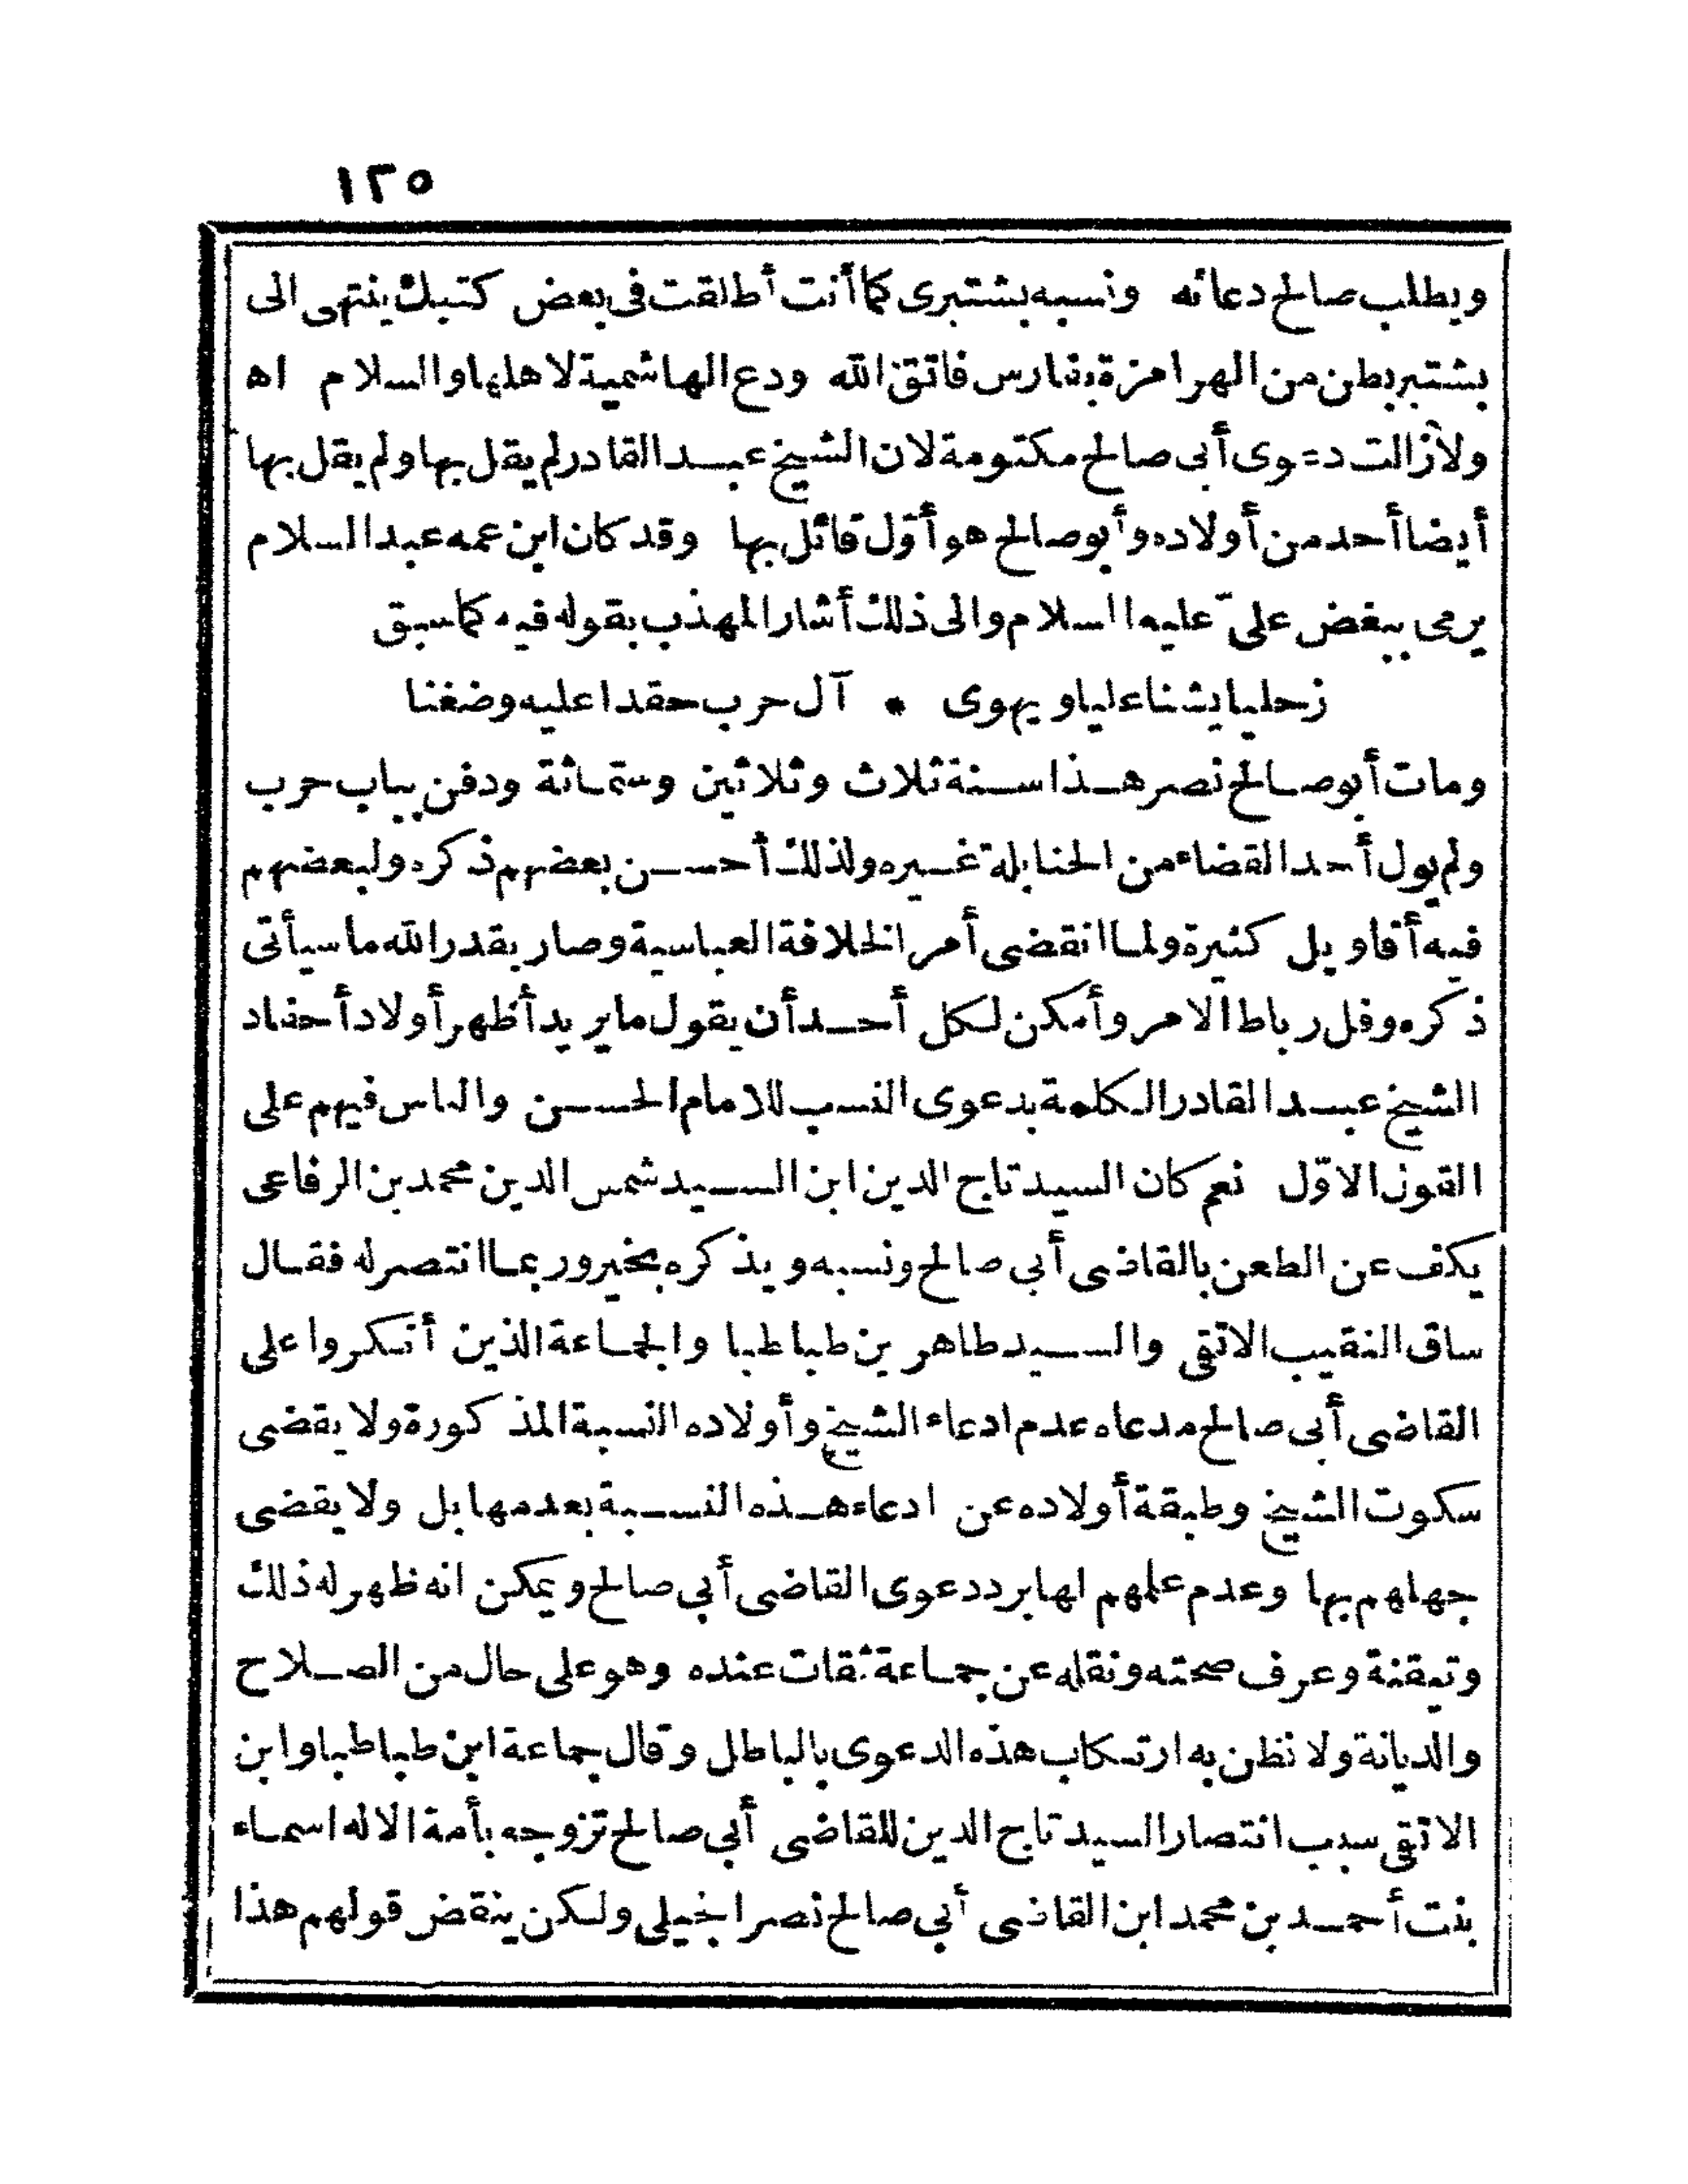 ١٢٥
ويطلب صالح دعائه ونسبه بشتبرى كما أنت أطلقت فى بعض كتبك ينتهى الى
بشتبر بطن من الهرامزة بفارس فاتق الله ودع الهاشمية لاهلها والسلام اه
ولازالت دعوى أبى صالح مكتومة لان الشيخ عبد القادر لم يقل بها ولم يقل بها
أيضا أحد من أولاده وأبو صالح هو أوّل قائل بها وقد كان ابن عمه عبد السلام
يرمى ببغض علىّ عليه السلام والى ذلك أشار المهذب بقوله فيه كما سبق
زحليا يشنا عليا ويهوى * آل حرب حقدا عليه وضغنا
ومات أبو صالح نصر هذا سنة ثلاث وثلاثين وستمائة ودفن بباب حرب
ولم يول أحد القضاء من الحنابلة غيره ولذلك أحسن بعضهم ذكره ولبعضهم
فيه أقاويل كثيرة ولما انقضى أمر الخلافة العباسية وصار بقدر الله ما سيأتى
ذكره وفل رباط الامر وأمكن لكل أحد أن يقول ما يريد أظهر أولاد أحفاد
الشيخ عبد القادر الكلمة بدعوى النسب للامام الحسن والناس فيهم على
القول الاوّل نعم كان السيد تاج الدين ابن السيد شمس الدين محمد بن الرفاعى
يكف عن الطعن بالقاضى أبى صالح ونسبه ويذكره بخير وربما انتصر له فقال
ساق النقيب الاتقى والسيد طاهر بن طباطبا والجماعة الذين أنكروا على
القاضى أبى صالح مدعاه عدم ادعاء الشيخ وأولاده النسبة المذكورة ولا يقضى
سكوت الشيخ وطبقة أولاده عن ادعاء هذه النسبة بعدمها بل ولا يقضى
جهلهم بها وعدم علمهم لها برد دعوى القاضى أبى صالح ويمكن انه ظهر له ذلك
وتيقنة وعرف صحته ونقله عن جماعة ثقات عنده وهو على حال من الصلاح
والديانة ولا نظن به ارتكاب هذه الدعوى بالباطل وقال جماعة ابن طباطبا وابن
الاتقى سبب انتصار السيد تاج الدين للقاضى أبى صالح تزوجه بأمة الاله اسماء
بنت أحمد بن محمد ابن القاضى أبى صالح نصر الجيلى ولكن ينقض قولهم هذا